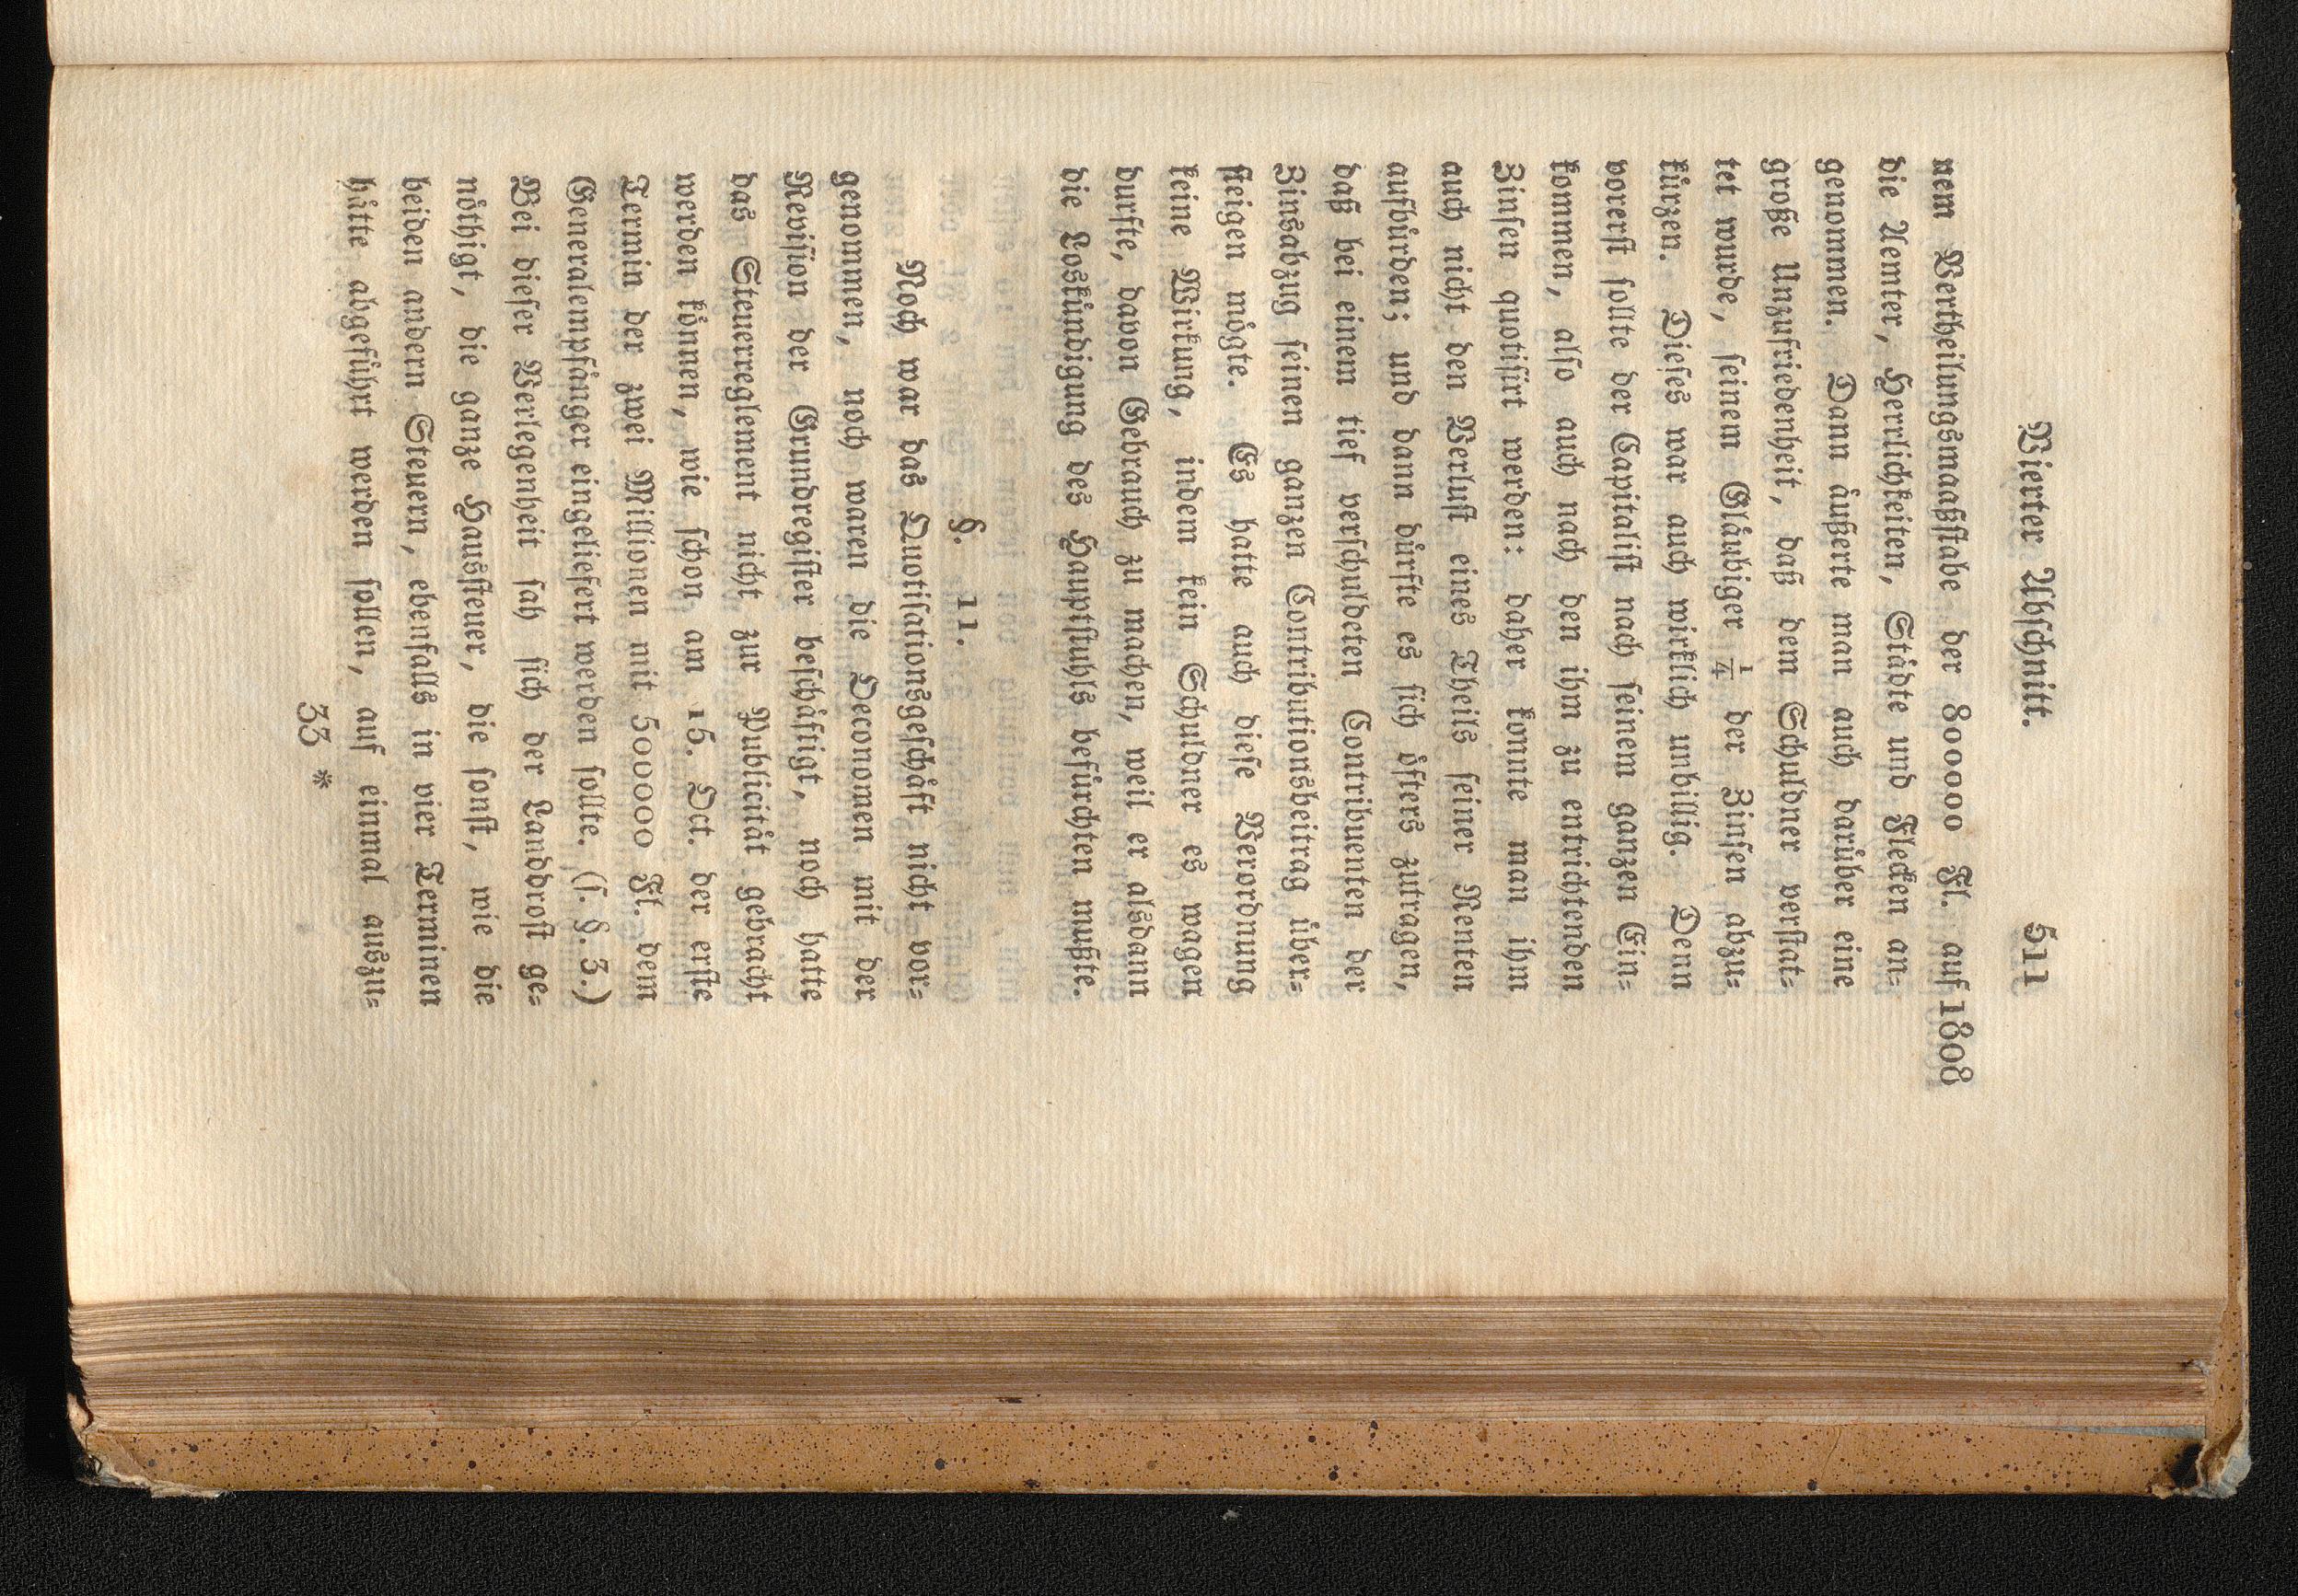 Vierter Abschnitt. 511
nem Vertheilungsmaaßstabe der 800000 Fl. auf 1808
die Aemter, Herrlichkeiten, Städte und Flecken an-
genommen. Dann äußerte man auch darüber eine
große Unzufriedenheit, daß dem Schuldner verstat-
tet wurde, seinem Gläubiger ¼ der Zinsen abzu-
kürzen. Dieses war auch wirklich unbillig. Denn
vorerst sollte der Capitalist nach seinem ganzen Ein-
kommen, also auch nach den ihm zu entrichtenden
Zinsen quotisirt werden: daher konnte man ihn
auch nicht den Verlust eines Theils seiner Renten
aufbürden; und dann dürfte es sich öfters zutragen,
daß bei einem tief verschuldeten Contribuenten der
Zinsabzug seinen ganzen Contributionsbeitrag über-
steigen mögte. Es hatte auch diese Verordnung
keine Wirkung, indem kein Schuldner es wagen
durfte, davon Gebrauch zu machen, weil er alsdann
die Loskündigung des Hauptstuhls befürchten mußte.
§. 11.
Noch war das Quotisationsgeschäft nicht vor-
genommen, noch waren die Oeconomen mit der
Revision der Grundregister beschäftigt, noch hatte
das Steuerreglement nicht zur Publicität gebracht
werden können, wie schon am 15. Oct. der erste
Termin der zwei Millionen mit 500000 Fl. dem
Generalempfänger eingeliefert werden sollte. (s. §. 3.)
Bei dieser Verlegenheit sah sich der Landdrost ge-
nöthigt, die ganze Hausstener, die sonst, wie die
beiden andern Steuern, ebenfalls in vier Terminen
hätte abgeführt werden sollen, auf einmal auszu-
33 *